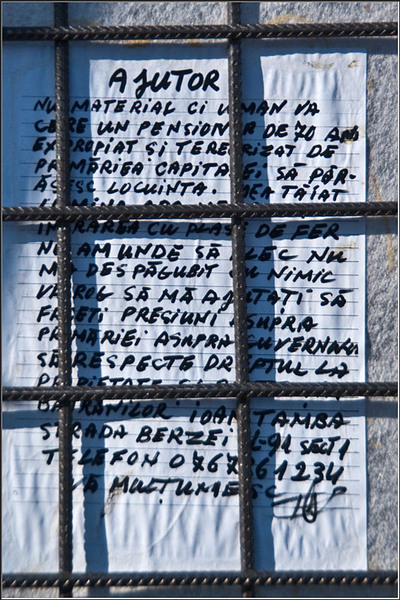 AJUTOR
NU MATERIAL CI UMAN VA
CERE UN PENSIONAR DE 70 ANI
EXPROPIAT ȘI TERORIZAT DE
PRIMĂRIEA CAPITALEI SĂ PĂR-
ĂSESC LOCUINȚA. TĂIAT
LUMINA APA
INTRAREA CU PLASĂ DE FER
NU AM UNDE SĂ PLEC NU
M-A DESPĂGUBIT CU NIMIC
VĂ ROG SĂ MĂ AJUTAȚI SĂ
FACEȚI PRESIUNI ASUPRA
PRIMĂRIEI ASUPRA GUVERNULUI
SĂ RESPECTE DREPTUL LA
PROPIETATE
BĂTRÂNILOR IOAN TAMBA
STRADA BERZEI 91 SECT 1
TELEFON 0767 61234
VĂ MULȚUMESC